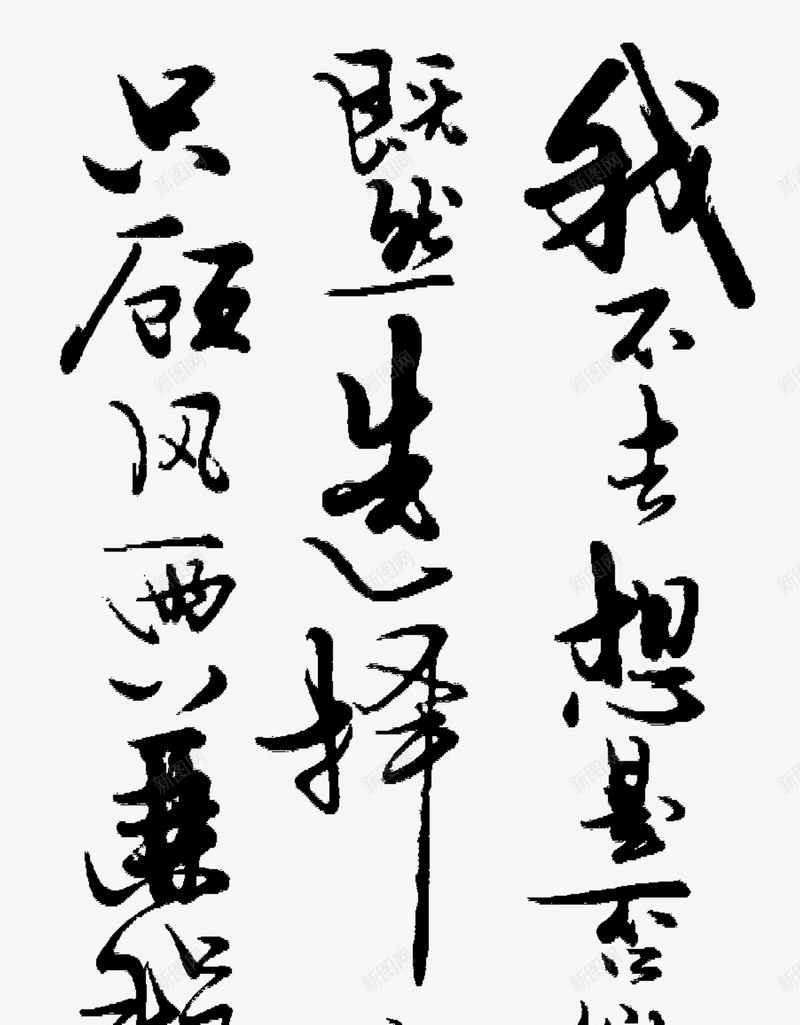 我不去想是否
既然选择
只顾风雨兼程
新图网